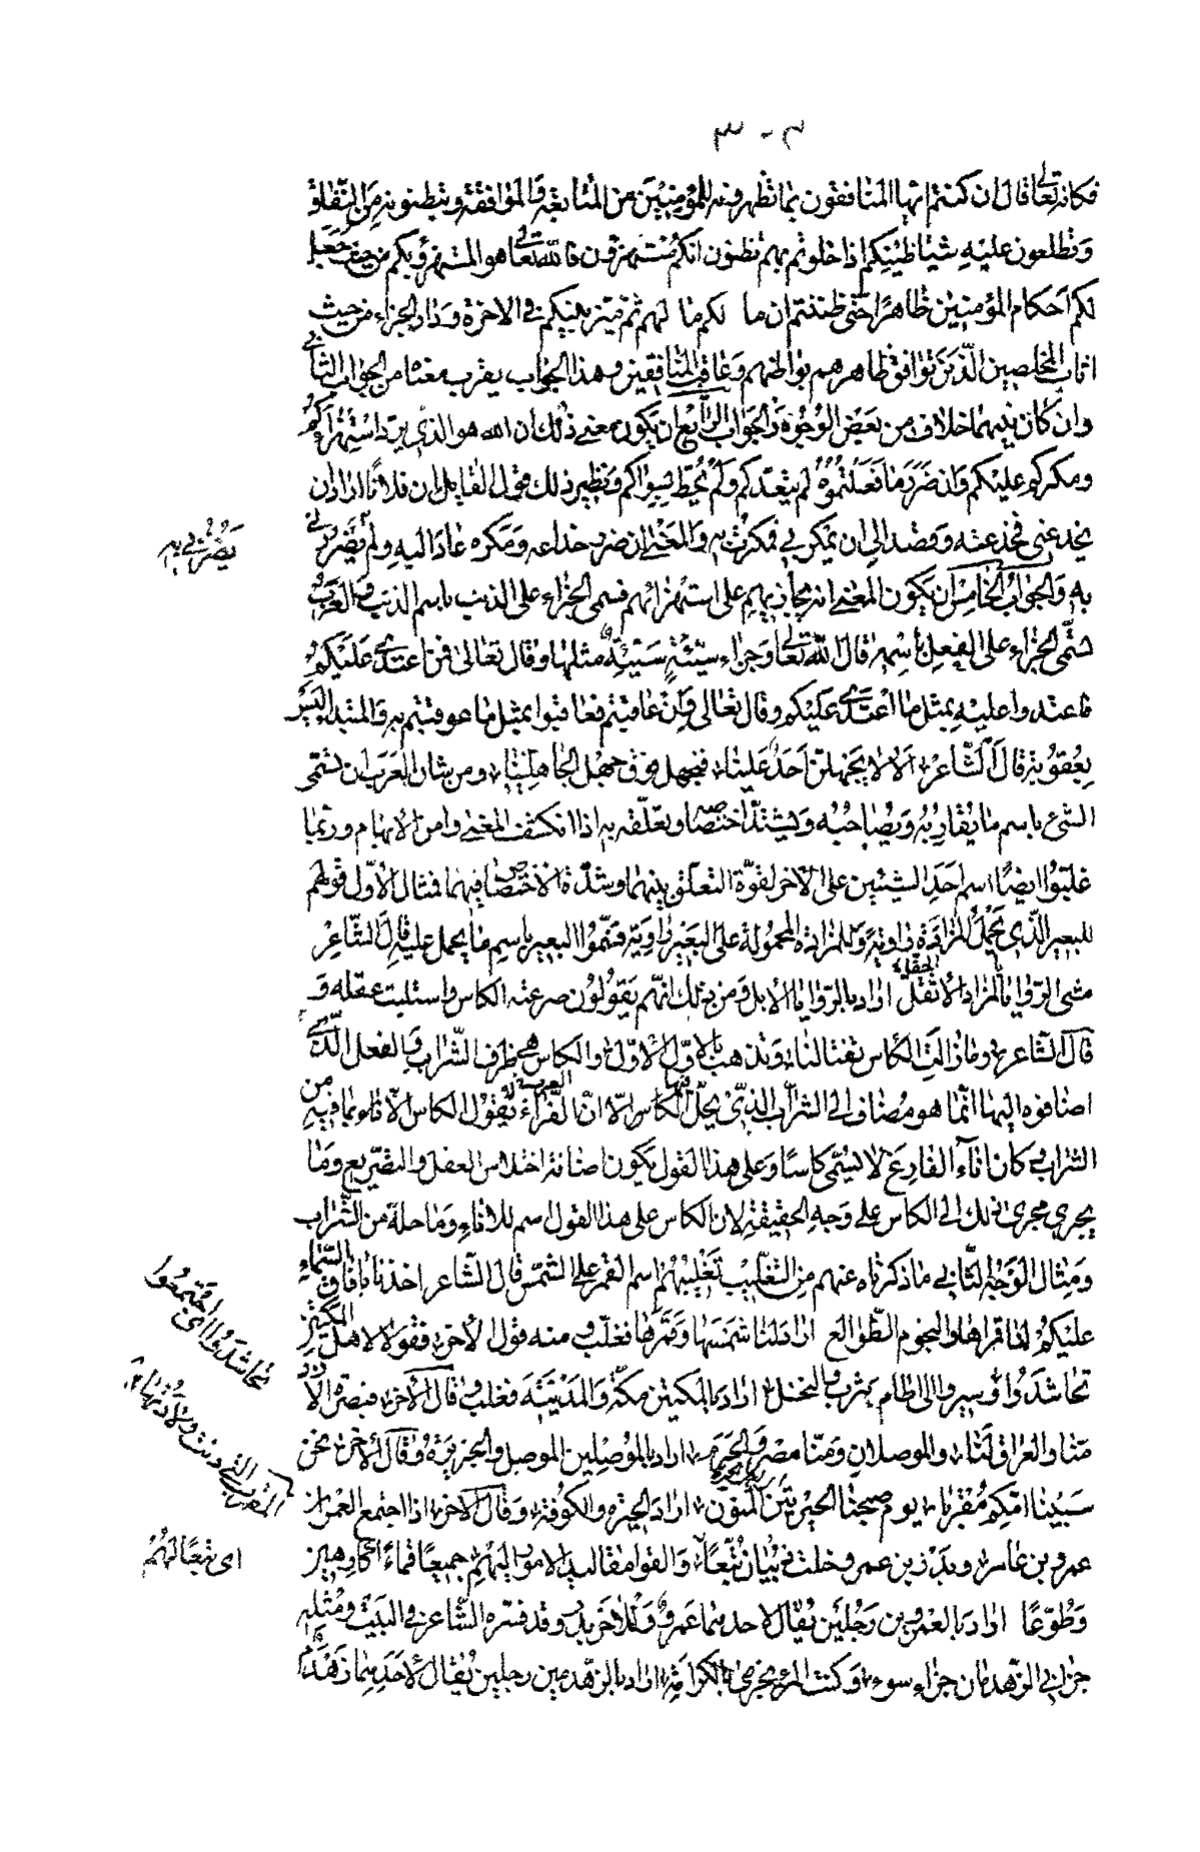 ٣٠٣
فكانه تعالى قال ان كنتم ايها المنافقون بما تظهرونه للمؤمنين من المتابعة والموافقة وتبطنونه من النفاق
وتطلعون عليه شياطينكم اذا خلوتم بهم تظنون انكم مستهزؤن فالله تعالى هو المستهزئ بكم من حيث جعل
لكم احكام المؤمنين ظاهرا حتى ظننتم ان ما لكم ما لهم ثم ميز بينكم في الاخرة ودار الجزاء من حيث
اثاب المخلصين الذين توافق ظاهرهم بواطنهم وعاقب المنافقين وهذا الجواب يقرب معناه من الجواب الثاني
وان كان بينهما خلاف من بعض الوجوه والجواب الرابع ان يكون معنى ذلك ان الله هو الذي يرد استهزاءكم
ومكركم عليكم وان ضرر ما فعلتموه لم يتعدكم ولم يحط بسواكم ونظير ذلك قول القايل ان فلانا اراد ان
يخدعني فخدعته وقصد الى ان يمكر بي فمكرت به والمعنى ان ضرر خداعه ومكره عاد اليه ولم يضرر لي
يضررني به
به والجواب الخامس ان يكون المعنى انه يجازيهم على استهزائهم فسمى الجزاء على الذنب باسم الذنب والعرب
تسمى الجزاء على الفعل باسمه قال الله تعالى وجزاء سيئة سيئة مثلها وقال تعالى فمن اعتدى عليكم
فاعتدوا عليه بمثل ما اعتدى عليكم وقال تعالى وان عاقبتم فعاقبوا بمثل ما عوقبتم به والمبتدا ليس
بعقوبة قال الشاعر الا لا يجهلن احد علينا فنجهل فوق جهل الجاهلينا ومن شان العرب ان تسمى
الشيء باسم ما يقاربه ويصاحبه ويشتد اختصاصه وتعلقه به اذا انكشف المعنى وامن الابهام وربما
غلبوا ايضا اسم احد الشيئين على الاخر لقوة التعلق بينهما وشدة الاختصاص فيهما فمثال الاول قولهم
للبعير الذي يحمل المزادة راوية وللمزادة المحمولة على البعير راوية فسموا البعير باسم ما يحمل عليه قال الشاعر
مشى الروايا بالمزاد الاثقل اراد بالروايا الابل ومن ذلك انهم يقولون صرعته الكاس واستلبت عقله و
قال الشاعر وما زالت الكاس تغتالنا وتذهب بالاول الاول والكاس هي ظرف الشراب والفعل الذي
اضافوه اليها انما هو مضاف الى الشراب الذي يحل الكاس فيها الا ان الفراء يقول الكاس الاناء بما فيه من
الشراب كان الاناء الفارغ لا يسمى كاسا وعلى هذا القول يكون اضافة اختلاس العقل والتصريع وما
يجري مجرى ذلك الى الكاس على وجه الحقيقة لان الكاس على هذا القول اسم للاناء وما حله من الشراب
ومثال الوجه الثاني ما ذكرناه عنهم من التغليب تغليبهم اسم القمر على الشمس قال الشاعر اخذنا بافاق السماء
عليكم لنا قمراها والنجوم الطوالع اراد لنا شمسها وقمرها فغلب ومنه قول الاخر فقولا لاهل المكتين
تحاشدوا وسيروا الى اطام يثرب والنخل اراد بالمكتين مكة والمدينة فغلب وقال الاخر فبصرة الازد
تحاشدوا اى اجتمعوا
منا والعراق لنا والموصلان ومنا مصر والحرم اراد بالموصلين الموصل والجزيرة وقال الاخر نحن
سبينا امكم مقربا يوم صبحنا الحيرتين المنون اراد الحيرة والكوفة وقال الاخر اذا اجتمع العمران
عمرو بن عامر وبدر بن عمرو خلت ذبيان تبعا والقوا مقاليد الامور اليهم جميعا قماء كارهين
اى تبعا لهم
وطوعا اراد بالعمرين رجلين يقال لاحدهما عمرو وللاخر بدر وقد فسره الشاعر في البيت ومثله
جزاني الزهدمان جزاء سوء وكنت المرء يجزى بالكرامة اراد بالزهدمين رجلين يقال لاحدهما زهدم